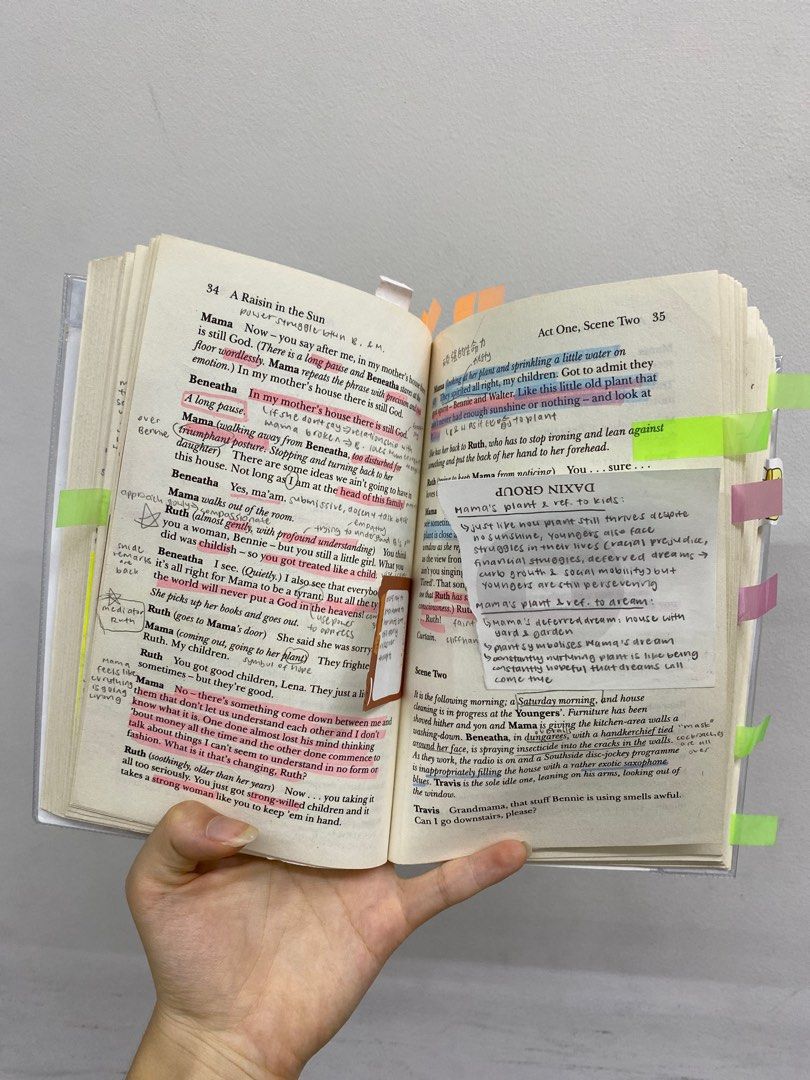 34 A Raisin in the Sun
power struggle btwn B. & M.
Mama Now – you say after me, in my mother's house there
is still God. (There is a long pause and Beneatha stares at the
floor wordlessly. Mama repeats the phrase with precision and
emotion.) In my mother's house there is still God.
Beneatha In my mother's house there is still God.
A long pause.
Mama (walking away from Beneatha, too disturbed for
triumphant posture. Stopping and turning back to her
daughter) There are some ideas we ain't going to have in
this house. Not long as I am at the head of this family.
over
Bennie
Beneatha Yes, ma'am.
submissive,
Mama walks out of the room.
approach
compassionate
empathy
Ruth (almost gently, with profound understanding) You think
trying to understand
you a woman, Bennie – but you still a little girl. What you
did was childish – so you got treated like a child.
Beneatha I see. (Quietly.) I also see that everybody
it's all right for Mama to be a tyrant. But all the
the world will never put a God in the heavens!
snide
remarks
are
back
She picks up her books and goes out.
use power
to oppress
mediator
Ruth
Ruth (goes to Mama's door) She said she was sorry.
Mama (coming out, going to her plant) They frighten
symbol of hope
Ruth. My children.
Ruth You got good children, Lena. They just a
sometimes – but they're good.
Mama
feels like
everything
is going
wrong
Mama No – there's something come down between me and
them that don't let us understand each other and I don't
know what it is. One done almost lost his mind thinking
'bout money all the time and the other done commence to
talk about things I can't seem to understand in no form or
fashion. What is it that's changing, Ruth?
Ruth (soothingly, older than her years) Now . . . you taking it
all too seriously. You just got strong-willed children and it
takes a strong woman like you to keep 'em in hand.
Act One, Scene Two 35
Mama (looking at her plant and sprinkling a little water on
it) They spirited all right, my children. Got to admit they
got spirit – Bennie and Walter. Like this little old plant that
ain't never had enough sunshine or nothing – and look at
She has her back to Ruth, who has to stop ironing and lean against
something and put the back of her hand to her forehead.
Ruth (trying to keep Mama from noticing) You . . . sure . . .
DAXIN GROUP
Mama's plant & ref. to kids:
↳ just like how plant still thrives despite
no sunshine, Youngers also face
struggles in their lives (racial prejudice,
financial struggles, deferred dreams →
curb growth & social mobility) but
Youngers are still persevering
Mama's plant & ref. to dream:
↳ Mama's deferred dream: house with
yard & garden
→ plant symbolises Mama's dream
→ constantly nurturing plant is like being
constantly hopeful that dreams will
come true
Curtain.
Scene Two
It is the following morning; a Saturday morning, and house
cleaning is in progress at the Youngers'. Furniture has been
shoved hither and yon and Mama is giving the kitchen-area walls a
overalls
washing-down. Beneatha, in dungarees, with a handkerchief tied
"mask"
around her face, is spraying insecticide into the cracks in the walls.
cockroaches
are all
over
As they work, the radio is on and a Southside disc-jockey programme
is inappropriately filling the house with a rather exotic saxophone
blues. Travis is the sole idle one, leaning on his arms, looking out of
the window.
Travis Grandmama, that stuff Bennie is using smells awful.
Can I go downstairs, please?